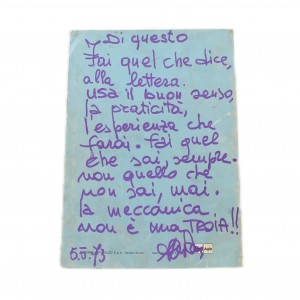 Di questo
fai quel che dice,
alla lettera.
usa il buon senso,
la praticità,
l'esperienza che
farai. fai quel
che sai, sempre.
non quello che
non sai, mai.
la meccanica
non è una TROIA!!
5.5.73